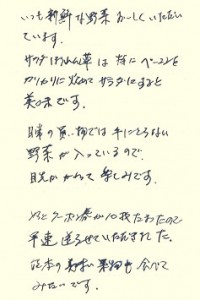 いつも新鮮な野菜おいしくいただい
ています。
サラダほうれん草は 特に ベーコンを
カリカリに炒めて サラダにすると
美味です。
日常の買い物では手にとらない
野菜が入っているので、
目先がかわって 楽しみです。
やっとクーポン券が10枚たまったので
早速 送らせていただきました。
熊本の 果物も 食べて
みたいです。